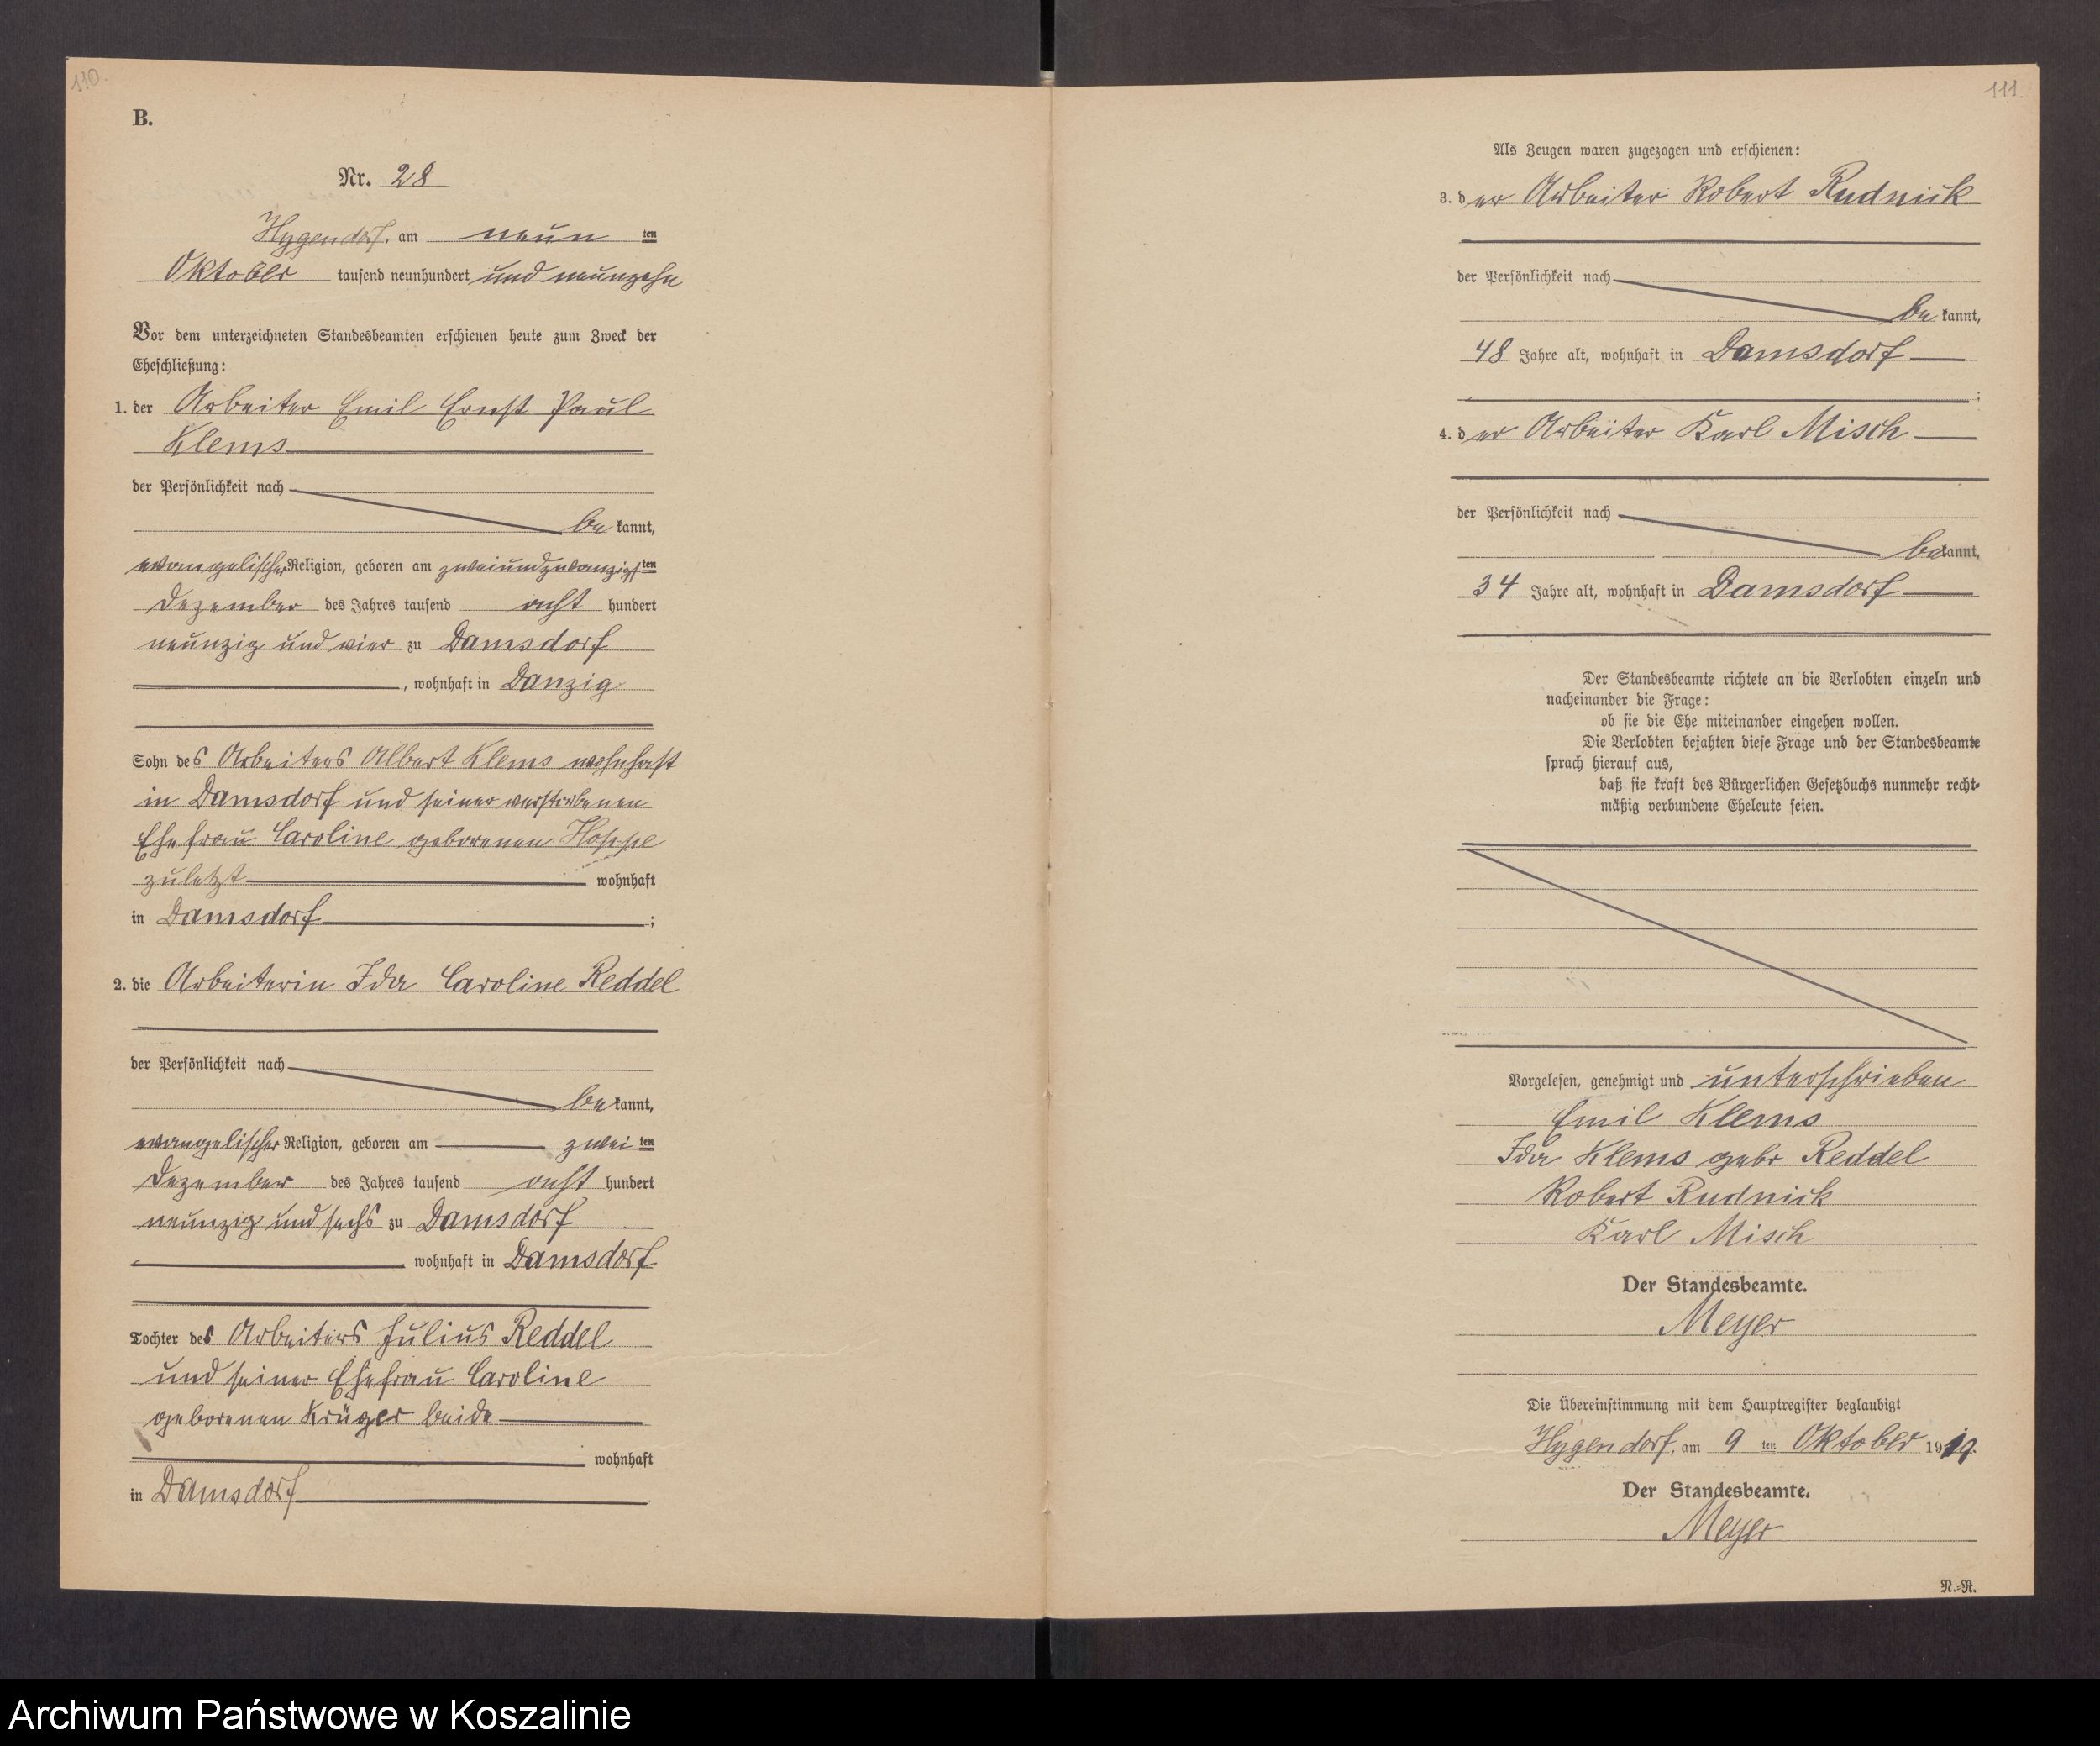 110.
B.
Nr. 28
Hygendorf, am neun ten
Oktober tausend neunhundert und neunzehn
Vor dem unterzeichneten Standesbeamten erschienen heute zum Zweck der
Eheschließung:
1. der Arbeiter Emil Ernst Paul
Klems
der Persönlichkeit nach
be kannt,
evangelischer Religion, geboren am zweiundzwanzigsten
Dezember des Jahres tausend acht hundert
neunzig und vier zu Damsdorf
, wohnhaft in Danzig
Sohn des Arbeiters Albert Klems wohnhaft
in Damsdorf und seiner verstorbenen
Ehefrau Caroline geborenen Hoppe
zuletzt wohnhaft
in Damsdorf ;
2. die Arbeiterin Ida Caroline Reddel
der Persönlichkeit nach
be kannt,
evangelischer Religion, geboren am zwei ten
Dezember des Jahres tausend acht hundert
neunzig und sechs zu Damsdorf
, wohnhaft in Damsdorf
Tochter des Arbeiters Julius Reddel
und seiner Ehefrau Caroline
geborenen Krüger beide
wohnhaft
in Damsdorf
111.
Als Zeugen waren zugezogen und erschienen:
3. der Arbeiter Robert Rudnick
der Persönlichkeit nach
be kannt,
48 Jahre alt, wohnhaft in Damsdorf
;
4. der Arbeiter Karl Misch
der Persönlichkeit nach
be kannt,
34 Jahre alt, wohnhaft in Damsdorf
Der Standesbeamte richtete an die Verlobten einzeln und
nacheinander die Frage:
ob sie die Ehe miteinander eingehen wollen.
Die Verlobten bejahten diese Frage und der Standesbeamte
sprach hierauf aus,
daß sie kraft des Bürgerlichen Gesetzbuchs nunmehr recht-
mäßig verbundene Eheleute seien.
Vorgelesen, genehmigt und unterschrieben
Emil Klems
Ida Klems gebr Reddel
Robert Rudnick
Karl Misch
Der Standesbeamte.
Meyer
Die Übereinstimmung mit dem Hauptregister beglaubigt
Hygendorf, am 9 ten Oktober 1919.
Der Standesbeamte.
Meyer
N.-R.
Archiwum Państwowe w Koszalinie